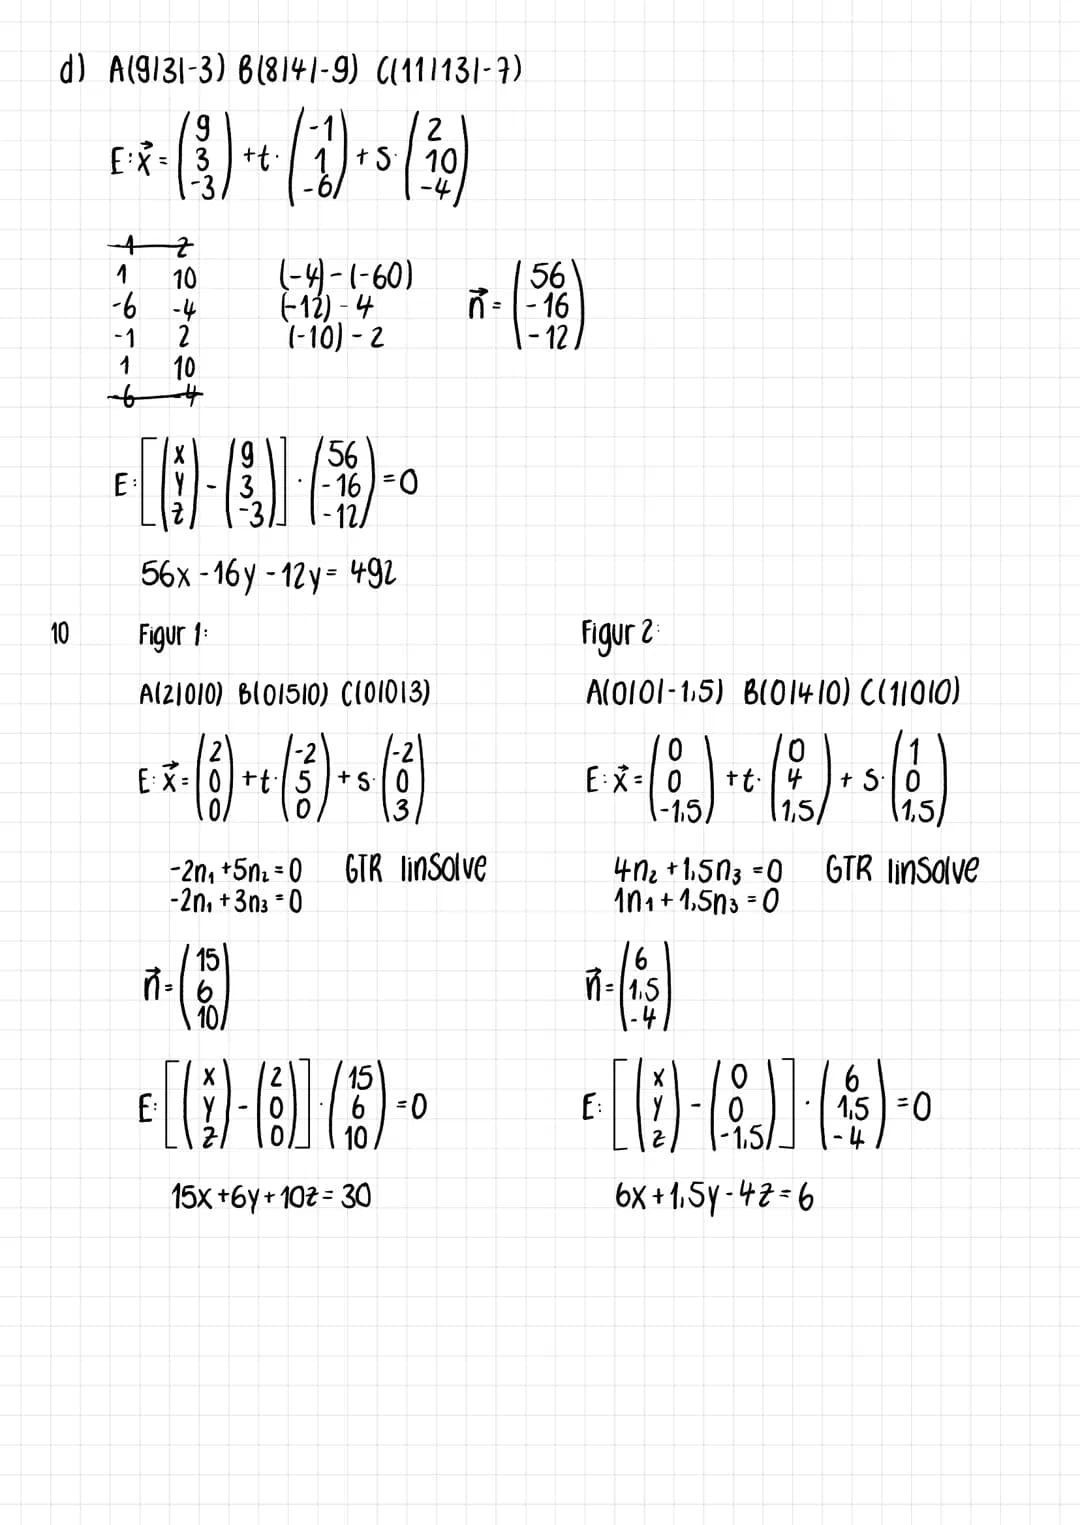 d) A(9|3|-3) B(8|4|-9) C(11|13|-7)
E: x⃗ = (9 3 -3) + t · (-1 1 -6) + s · (2 10 -4)
-1 2
1 10 (-4) - (-60)
-6 -4 (-12) - 4
-1 2 (-10) - 2
1 10
-6 -4
n⃗ = (56 -16 -12)
E: [(x y z) - (9 3 -3)] · (56 -16 -12) = 0
56x - 16y - 12y = 492
10 Figur 1:
A(2|0|0) B(0|5|0) C(0|0|3)
E: x⃗ = (2 0 0) + t · (-2 5 0) + s · (-2 0 3)
-2n₁ + 5n₂ = 0 GTR linSolve
-2n₁ + 3n₃ = 0
n⃗ = (15 6 10)
E: [(x y z) - (2 0 0)] · (15 6 10) = 0
15x + 6y + 10z = 30
Figur 2:
A(0|0|-1,5) B(0|4|0) C(1|0|0)
E: x⃗ = (0 0 -1,5) + t · (0 4 1,5) + s · (1 0 1,5)
4n₂ + 1,5n₃ = 0 GTR linSolve
1n₁ + 1,5n₃ = 0
n⃗ = (6 1,5 -4)
E: [(x y z) - (0 0 -1,5)] · (6 1,5 -4) = 0
6x + 1,5y - 4z = 6